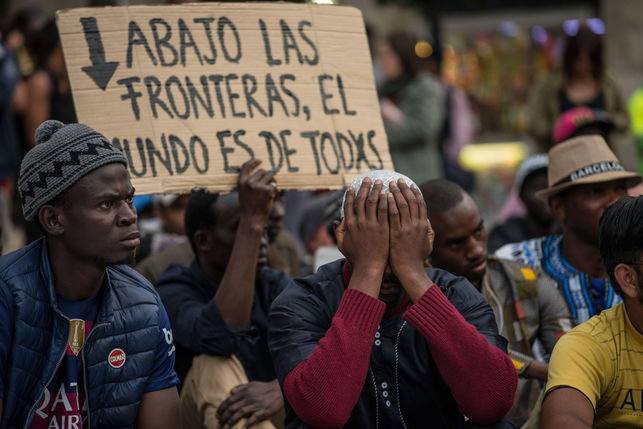 ABAJO LAS
FRONTERAS, EL
MUNDO ES DE TODXS
BARCELONA
QATAR
AIR